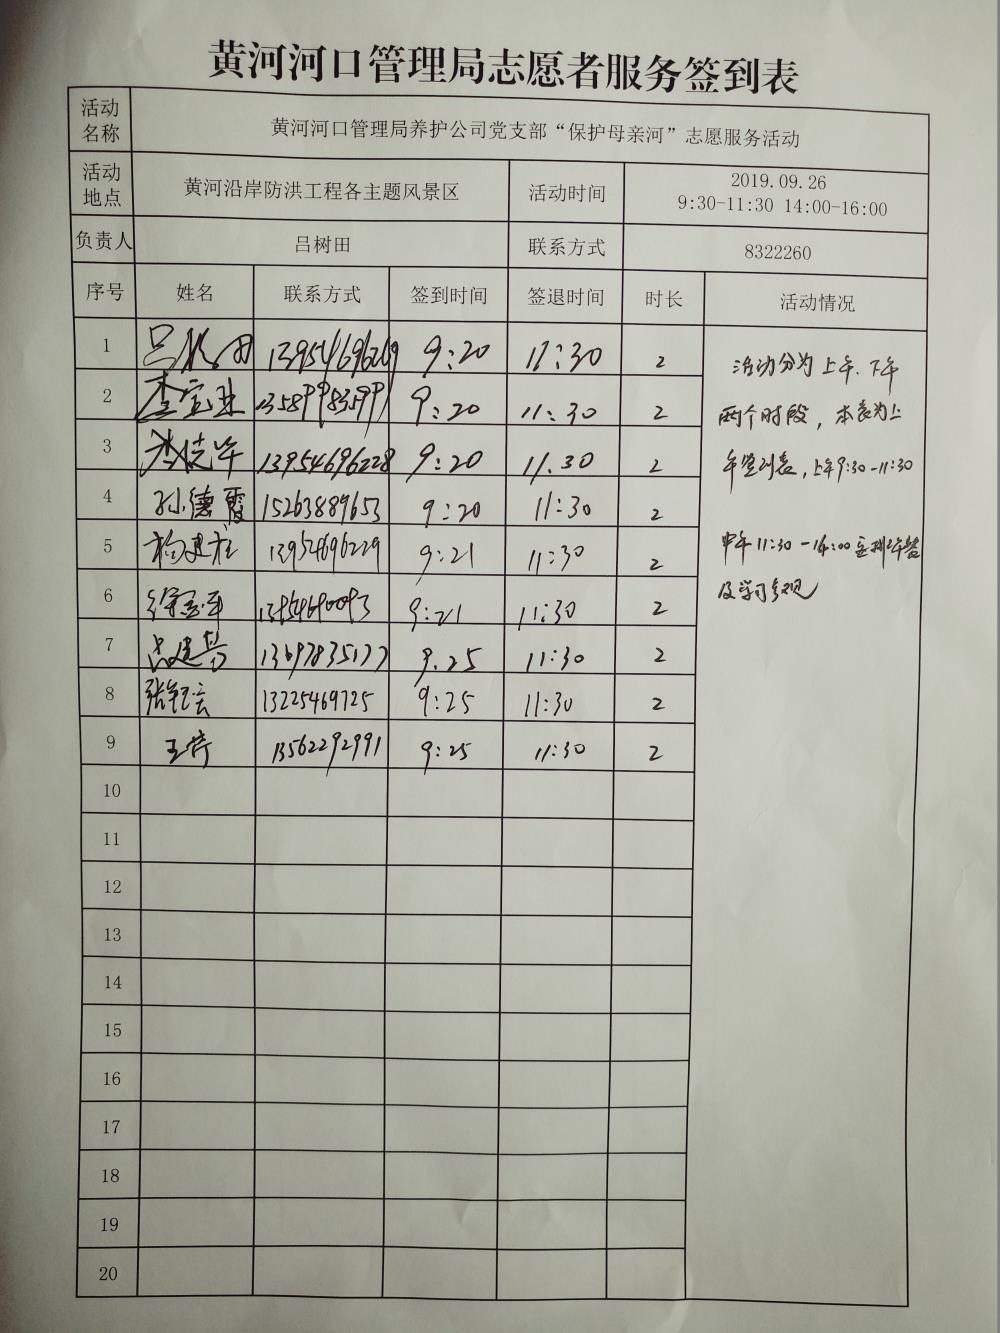 黄河河口管理局志愿者服务签到表
活动名称 黄河河口管理局养护公司党支部“保护母亲河”志愿服务活动
活动地点 黄河沿岸防洪工程各主题风景区 活动时间 2019.09.26
9:30-11:30 14:00-16:00
负责人 吕树田 联系方式 8322260
序号 姓名 联系方式 签到时间 签退时间 时长 活动情况
1 吕树田 13954696269 9:20 11:30 2
2 9:20 11:30 2
3 13954696228 9:20 11.30 2
4 孙德霞 15263889653 9:20 11:30 2
5 13954696229 9:21 11:30 2
6 9:21 11:30 2
7 9.25 11:30 2
8 13225469725 9:25 11:30 2
9 13562292991 9:25 11:30 2
10
11
12
13
14
15
16
17
18
19
20
活动分为上午、下午
两个时段，本表为上
午签到表，上午9:30-11:30
中午11:30-14:00
及学习参观